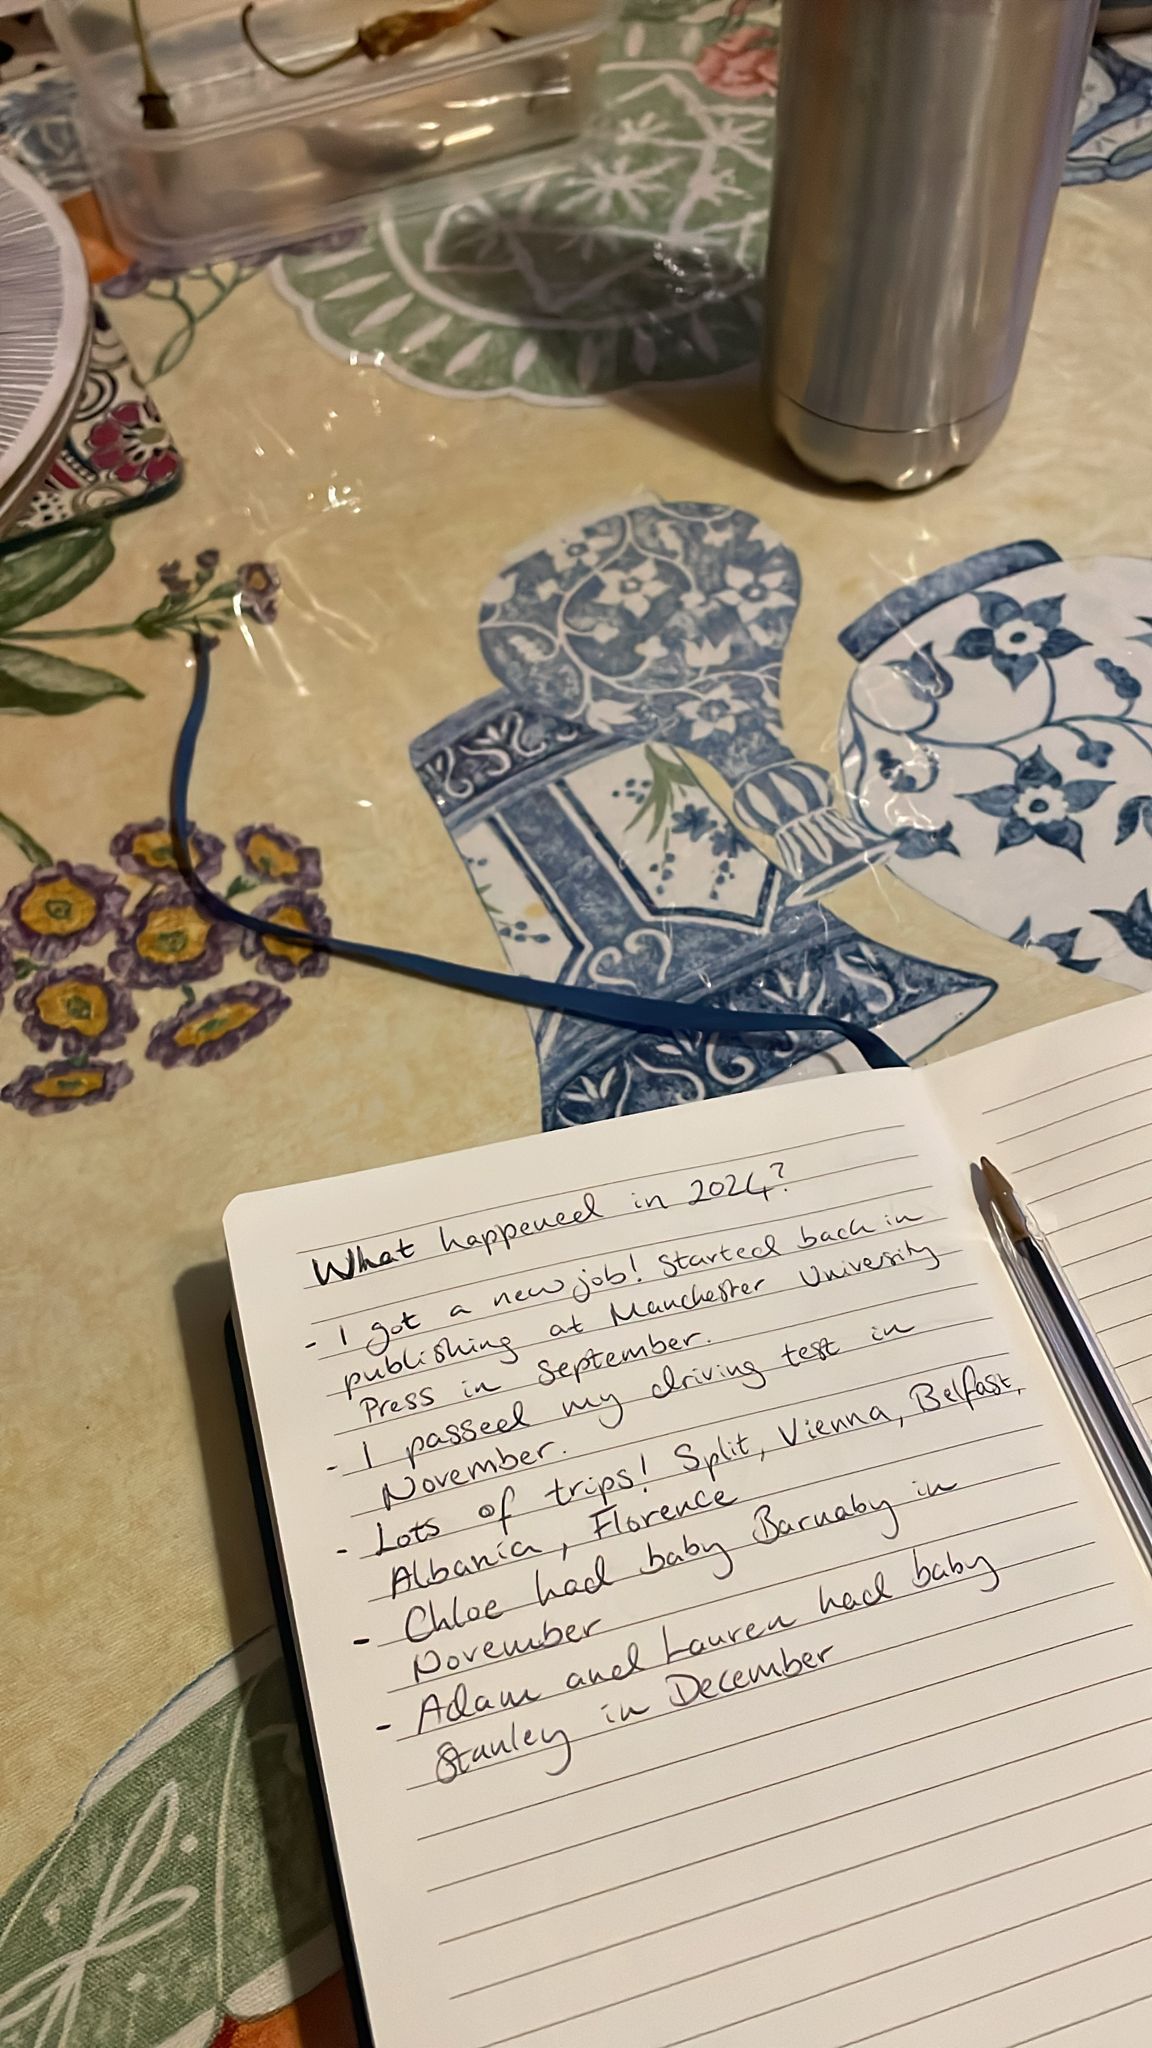 What happened in 2024?
- I got a new job! Started back in
publishing at Manchester University
Press in September.
- I passed my driving test in
November.
- Lots of trips! Split, Vienna, Belfast,
Albania, Florence
- Chloe had baby Barnaby in
November
- Adam and Lauren had baby
Stanley in December